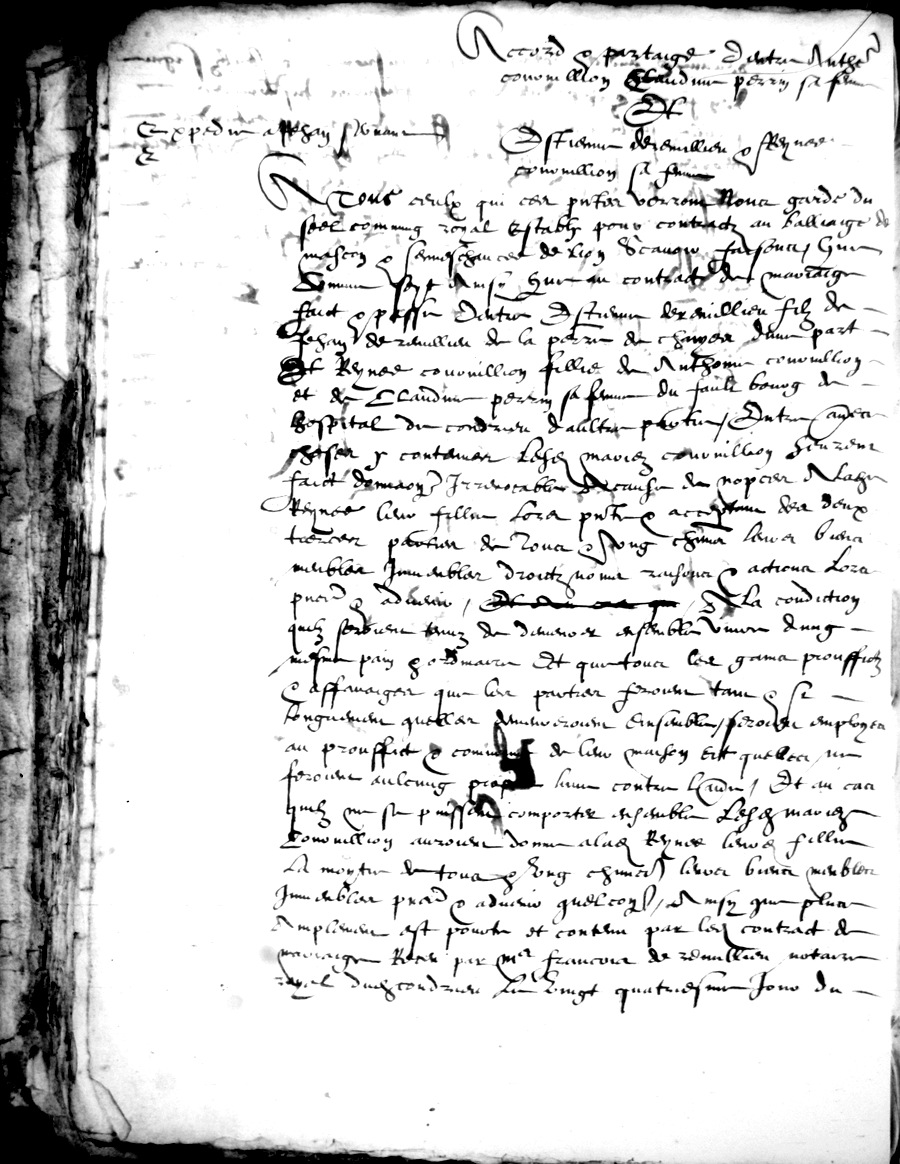 Accord & partaige d'entre Anthe
couvillion Claudine perrin sa feme
Et
Estienne deremillieu & Reynee
couvillion sa femme
Expedie a Jehan
A Tous ceulx qui ces pntes verront Nous garde du
seel commung royal estably pour contractz au balliaige de
mascon & seneschaucee de lion scavoir faisons, Que
comme soyt Ainsy Que au contract de mariaige
faict & passe d'entre Estienne deremillieu filz de
Jehan deremillieu de la perrie de d'une part
Et Reynee couvillion fillie de Anthoine couvillion
et de Claudine perrin sa femme du faulx bourg de
hospital de condrieu d'aultre partie, Entre aultres
choses y contenues Lesd mariez couvillion heurent
faict donnaon Irrevocable A cause de nopces A Lad
Reynee leur fillie Lors pnte & acceptant des deux
tierces parties de Tous & chungs leurs biens
meubles Immeubles droictz noms raisons & actions Lors
pns & advenir, A La condiction
quilz seroient tenuz de demeurer ensemble vivre d'ung
mesme pain & ordinaire Et que tous les gains prouffictz
& affanaiges que les parties feroient tant & si
longuement quelles demeureroient Ensemble, seroient employes
au prouffict & de leur maison Et quelles ne
feroient aulcung lune contre laultre, Et au cas
quilz ne se puissent comporter ensemble Lesd mariez
Couvillion auroient donne a lad Reynee leurd fillie
La moytie de tous & chungs leurs biens meubles
Immeubles pns & advenir quelcoqs, Ainsy que plus
Amplement est porte et contenu par led contract de
mariaige Receu par me francois de remillieu notaire
royal dud condrieu Le vingt quatriesme Jour du